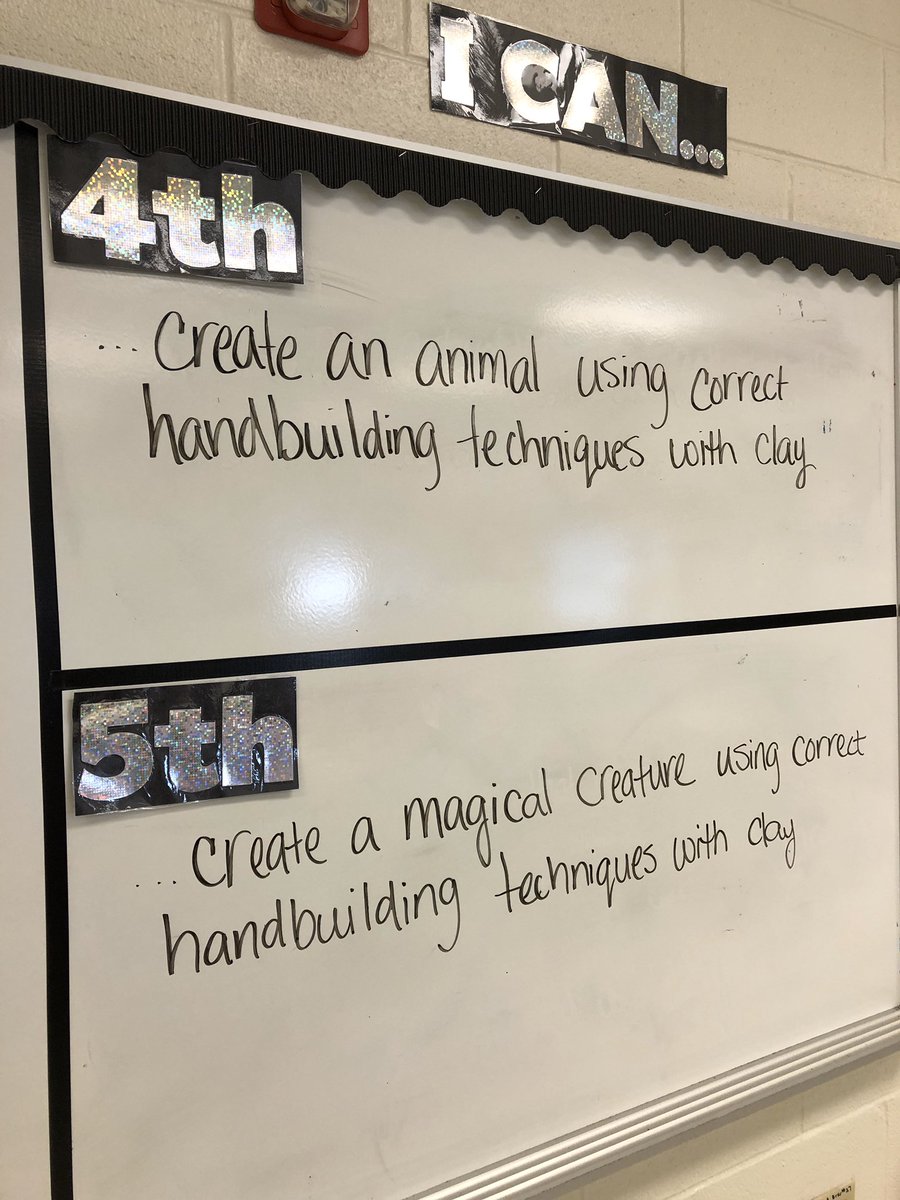 I CAN...
4th
... Create an animal using correct
handbuilding techniques with clay
5th
.... Create a magical creature using correct
handbuilding techniques with clay